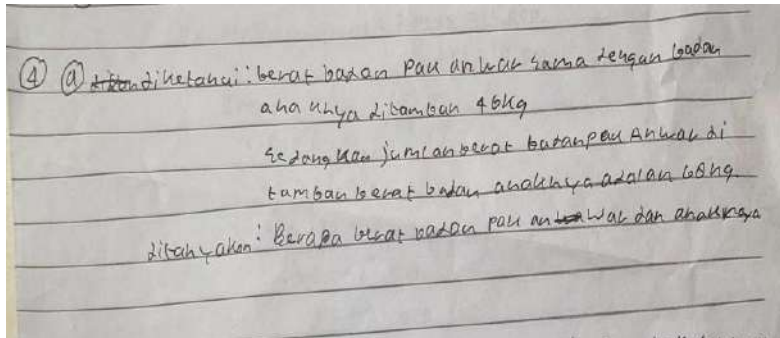 ④ ⓐ diketahui : berat badan pak anwar sama dengan badan
anaknya ditambah 46kg
sedangkan jumlah berat badan pak Anwar di
tambah berat badan anaknya adalah 68kg
ditanyakan : Berapa berat badan pak anwar dan anaknya